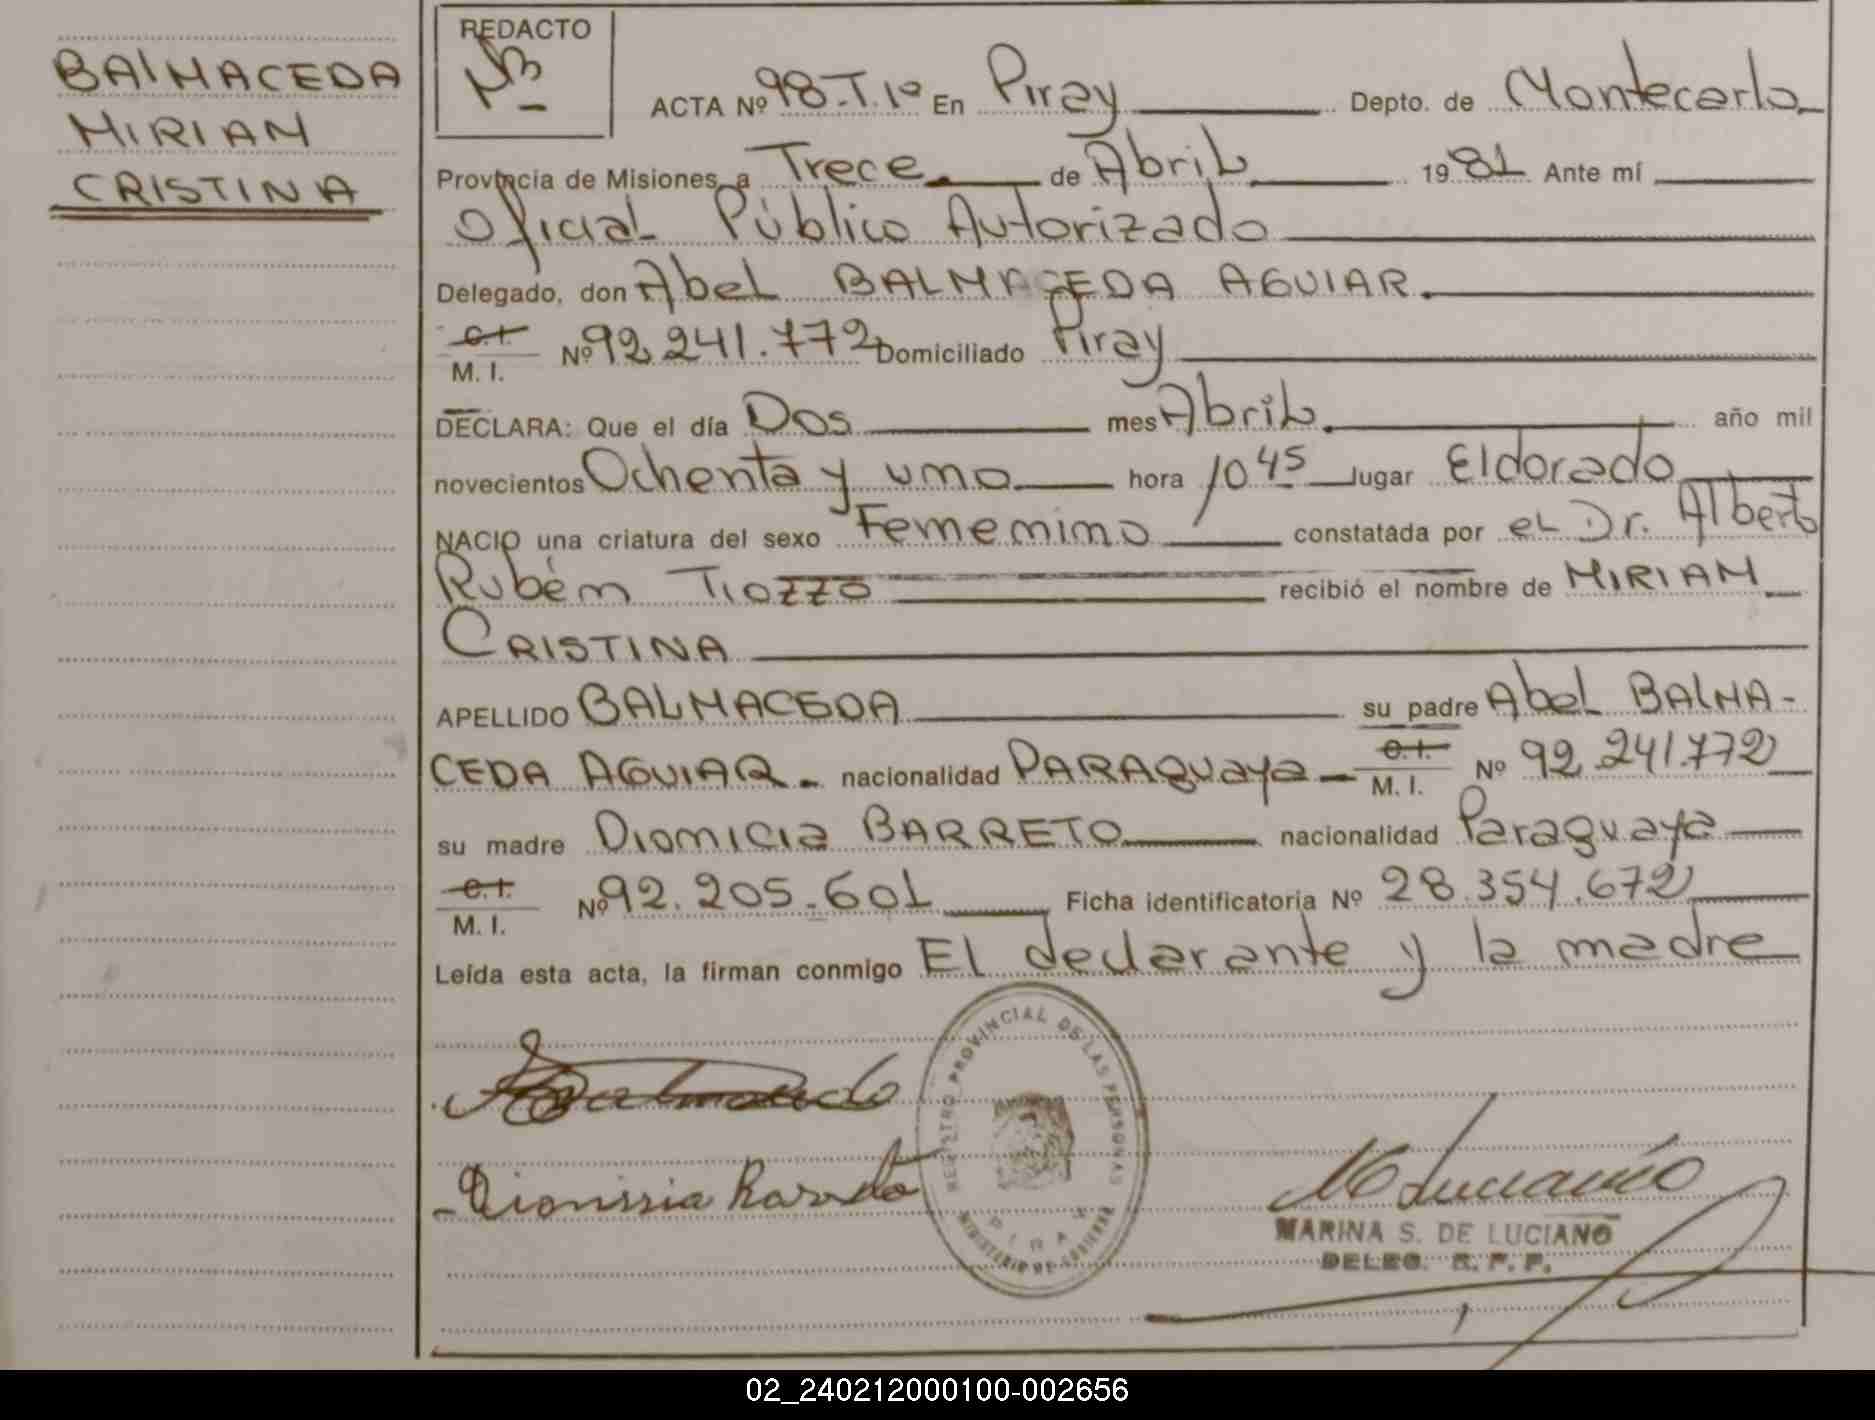 BALMACEDA
MIRIAM
CRISTINA
REDACTO
ACTA Nº 98-T.1º En Piray Depto. de Montecarlo
Provincia de Misiones, a Trece de Abril 1981 Ante mí
Oficial Público Autorizado
Delegado, don Abel BALMACEDA AGUIAR.
C.I.
M. I. Nº 92.241.772 Domiciliado Piray
DECLARA: Que el día Dos mes Abril. año mil
novecientos Ochenta y uno hora 10 45 lugar Eldorado
NACIO una criatura del sexo Femenino constatada por el Dr. Alberto
Rubén Tiozzo recibió el nombre de MIRIAM
CRISTINA
APELLIDO BALMACEDA su padre Abel BALMA-
CEDA AGUIAR. nacionalidad PARAguaya C.I. M. I. Nº 92.241.772
su madre Dionicia BARRETO nacionalidad Paraguaya
C.I.
M. I. Nº 92.205.601 Ficha identificatoria Nº 28.354.672
Leída esta acta, la firman conmigo El declarante y la madre
REGISTRO PROVINCIAL DE LAS PERSONAS
PIRAY
MINISTERIO DE GOBIERNO
MARINA S. DE LUCIANO
DELEG. R. P. P.
02_240212000100-002656